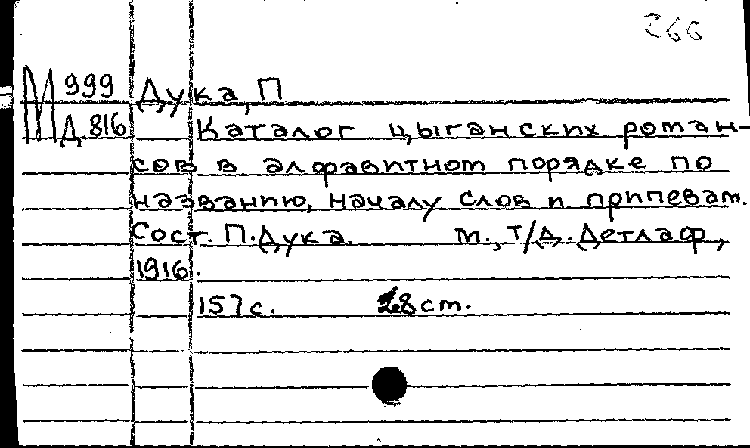 266
М 999 Дука, П
Д.816 Каталог цыганских роман-
сов в алфавитном порядке по
названию, началу слов и припевам.
Сост. П.Дука. М., Т/Д. Детлаф,
1916.
157 с. 28 см.